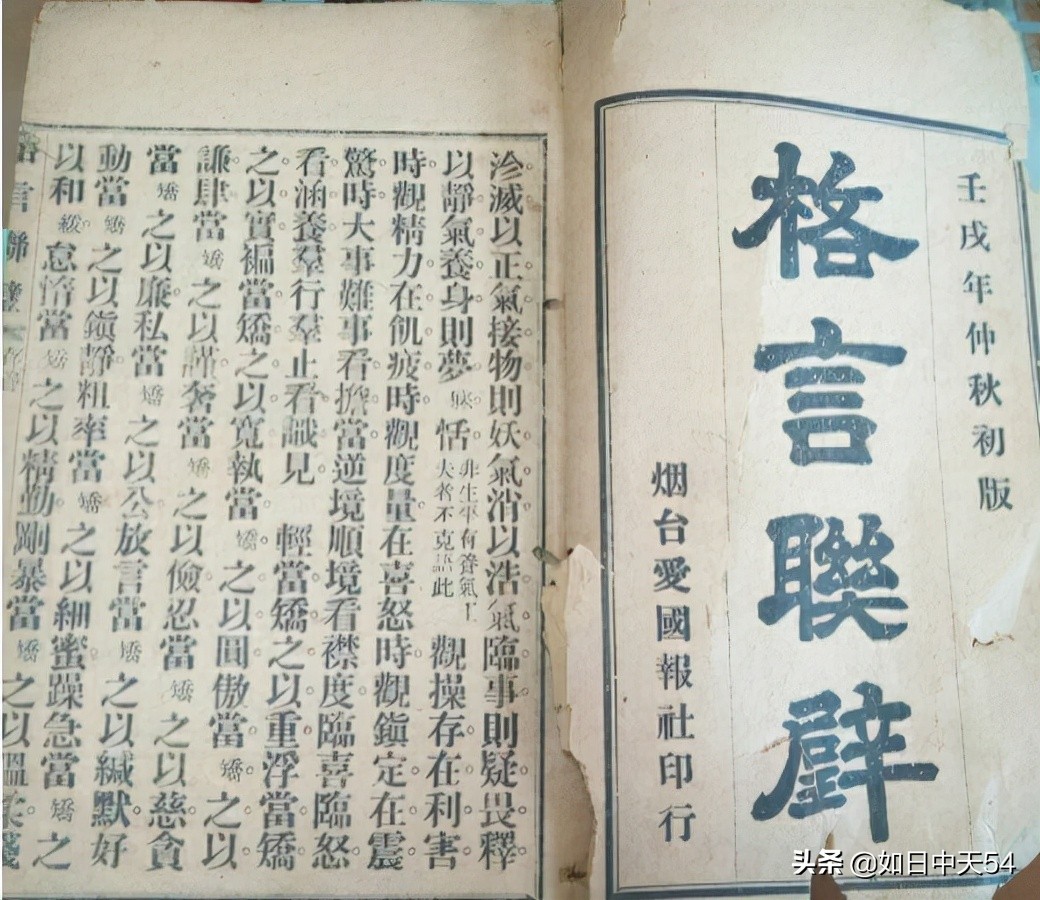 壬戌年仲秋初版
格言聯璧
烟台愛國報社印行
沴滅以正氣接物則妖氣消以浩氣臨事則疑畏釋
以靜氣養身則夢寐恬非生平有養氣工夫者不克語此觀操存在利害
時觀精力在飢疲時觀度量在喜怒時觀鎮定在震
驚時大事難事看擔當逆境順境看襟度臨喜臨怒
看涵養羣行羣止看識見 輕當矯之以重浮當矯
之以實褊當矯之以寬執當矯之以圓傲當矯之以
謙肆當矯之以謹奢當矯之以儉忍當矯之以慈貪
當矯之以廉私當矯之以公放言當矯之以緘默好
動當矯之以鎮靜粗率當矯之以細蜜躁急當矯之
以和緩怠惰當矯之以精勤剛暴當矯之以溫柔淺
言聯璧
头条 @如日中天54